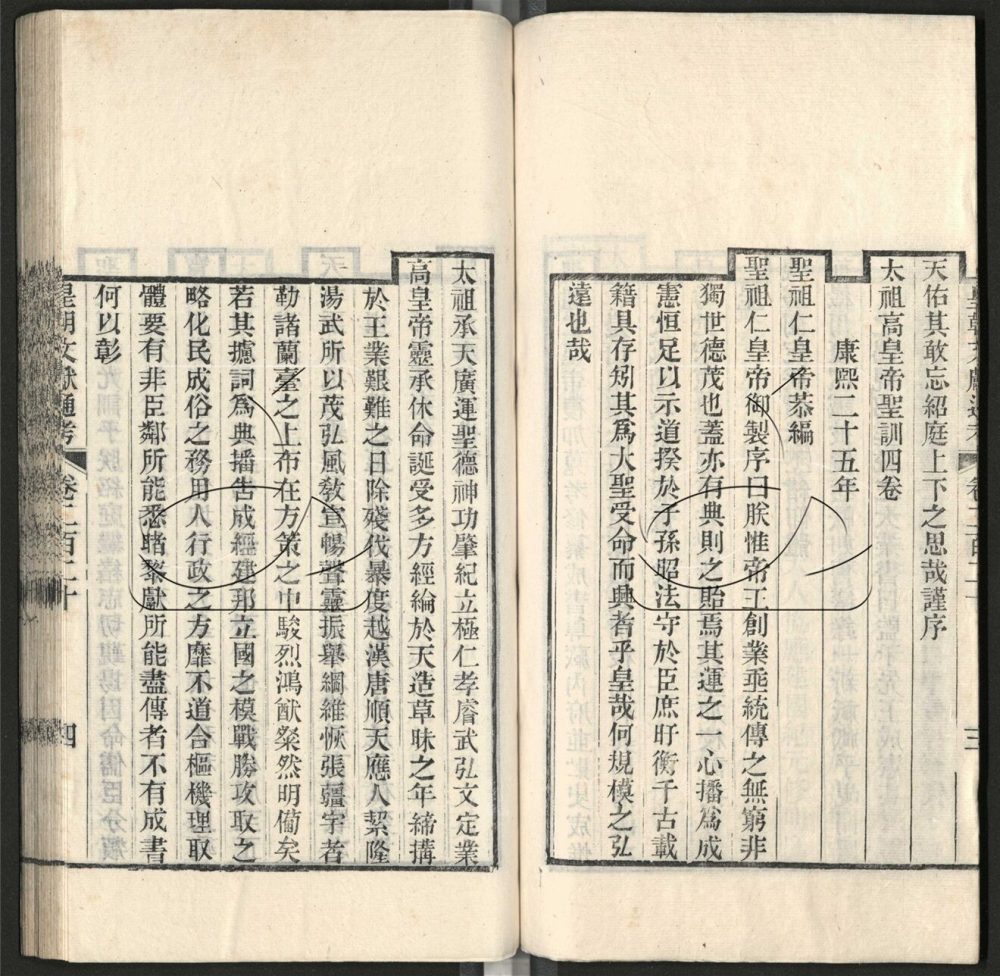 天佑其敢忘紹庭上下之思哉謹序
太祖高皇帝聖訓四卷
康熙二十五年
聖祖仁皇帝恭編
聖祖仁皇帝御製序曰朕惟帝王創業垂統傳之無窮非
獨世德茂也蓋亦有典則之貽焉其運之一心播爲成
憲恒足以示道揆於子孫昭法守於臣庶盱衡千古載
籍具存矧其爲大聖受命而興者乎皇哉何規模之弘
遠也哉
太祖承天廣運聖德神功肇紀立極仁孝睿武弘文定業
高皇帝靈承休命誕受多方經綸於天造草昧之年締搆
於王業艱難之日除殘伐暴度越漢唐順天應人絜隆
湯武所以茂弘風敎宣暢聲靈振舉綱維恢張疆宇者
勒諸蘭臺之上布在方策之中駿烈鴻猷粲然明僃矣
若其攄詞爲典播告成經建邦立國之模戰勝攻取之
略化民成俗之務用人行政之方靡不道合樞機理取
體要有非臣鄰所能悉睹黎獻所能盡傳者不有成書
何以彰
皇朝文獻通考 卷二百二十 四